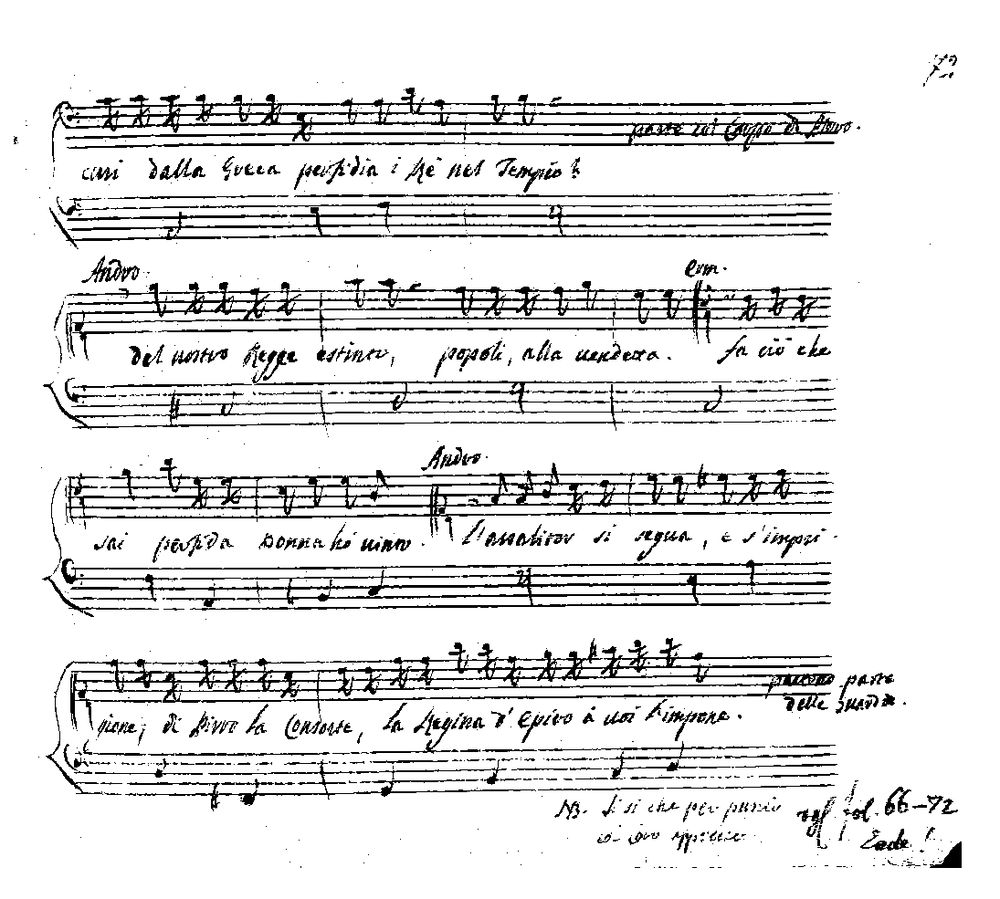 72
parte col Corpo di Pirro.
cusi dalla Greca perfidia i Rè nel Tempio?
Andro. Erm.
del nostro Regge estinto, popoli, alla vendetta. fa ciò che
Andro.
sai perfida Donna hò vinto. L'assalitor si segua, e s'impri-
gione, di Pirro la Consorte, la Regina d'Epiro à voi l'impone.
partono parte
delle guardie.
NB. si si che per
vgl fol. 66-72
Ende!